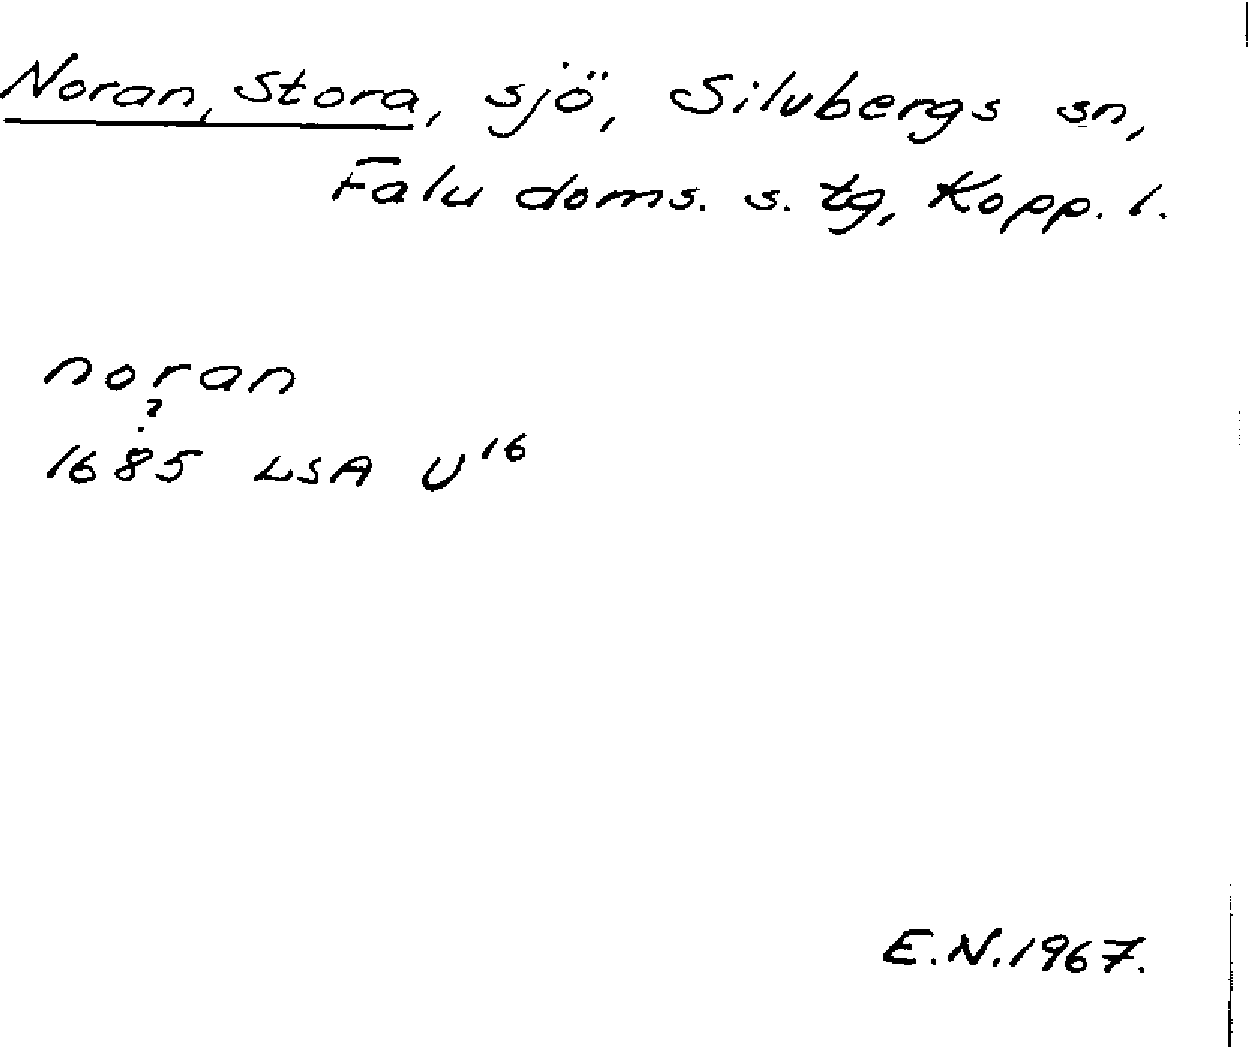 Noran, Stora, sjö, Silvbergs sn,
Falu doms. s. tg, Kopp. l.
noran
?
1685 LSA U16
E.N. 1967.